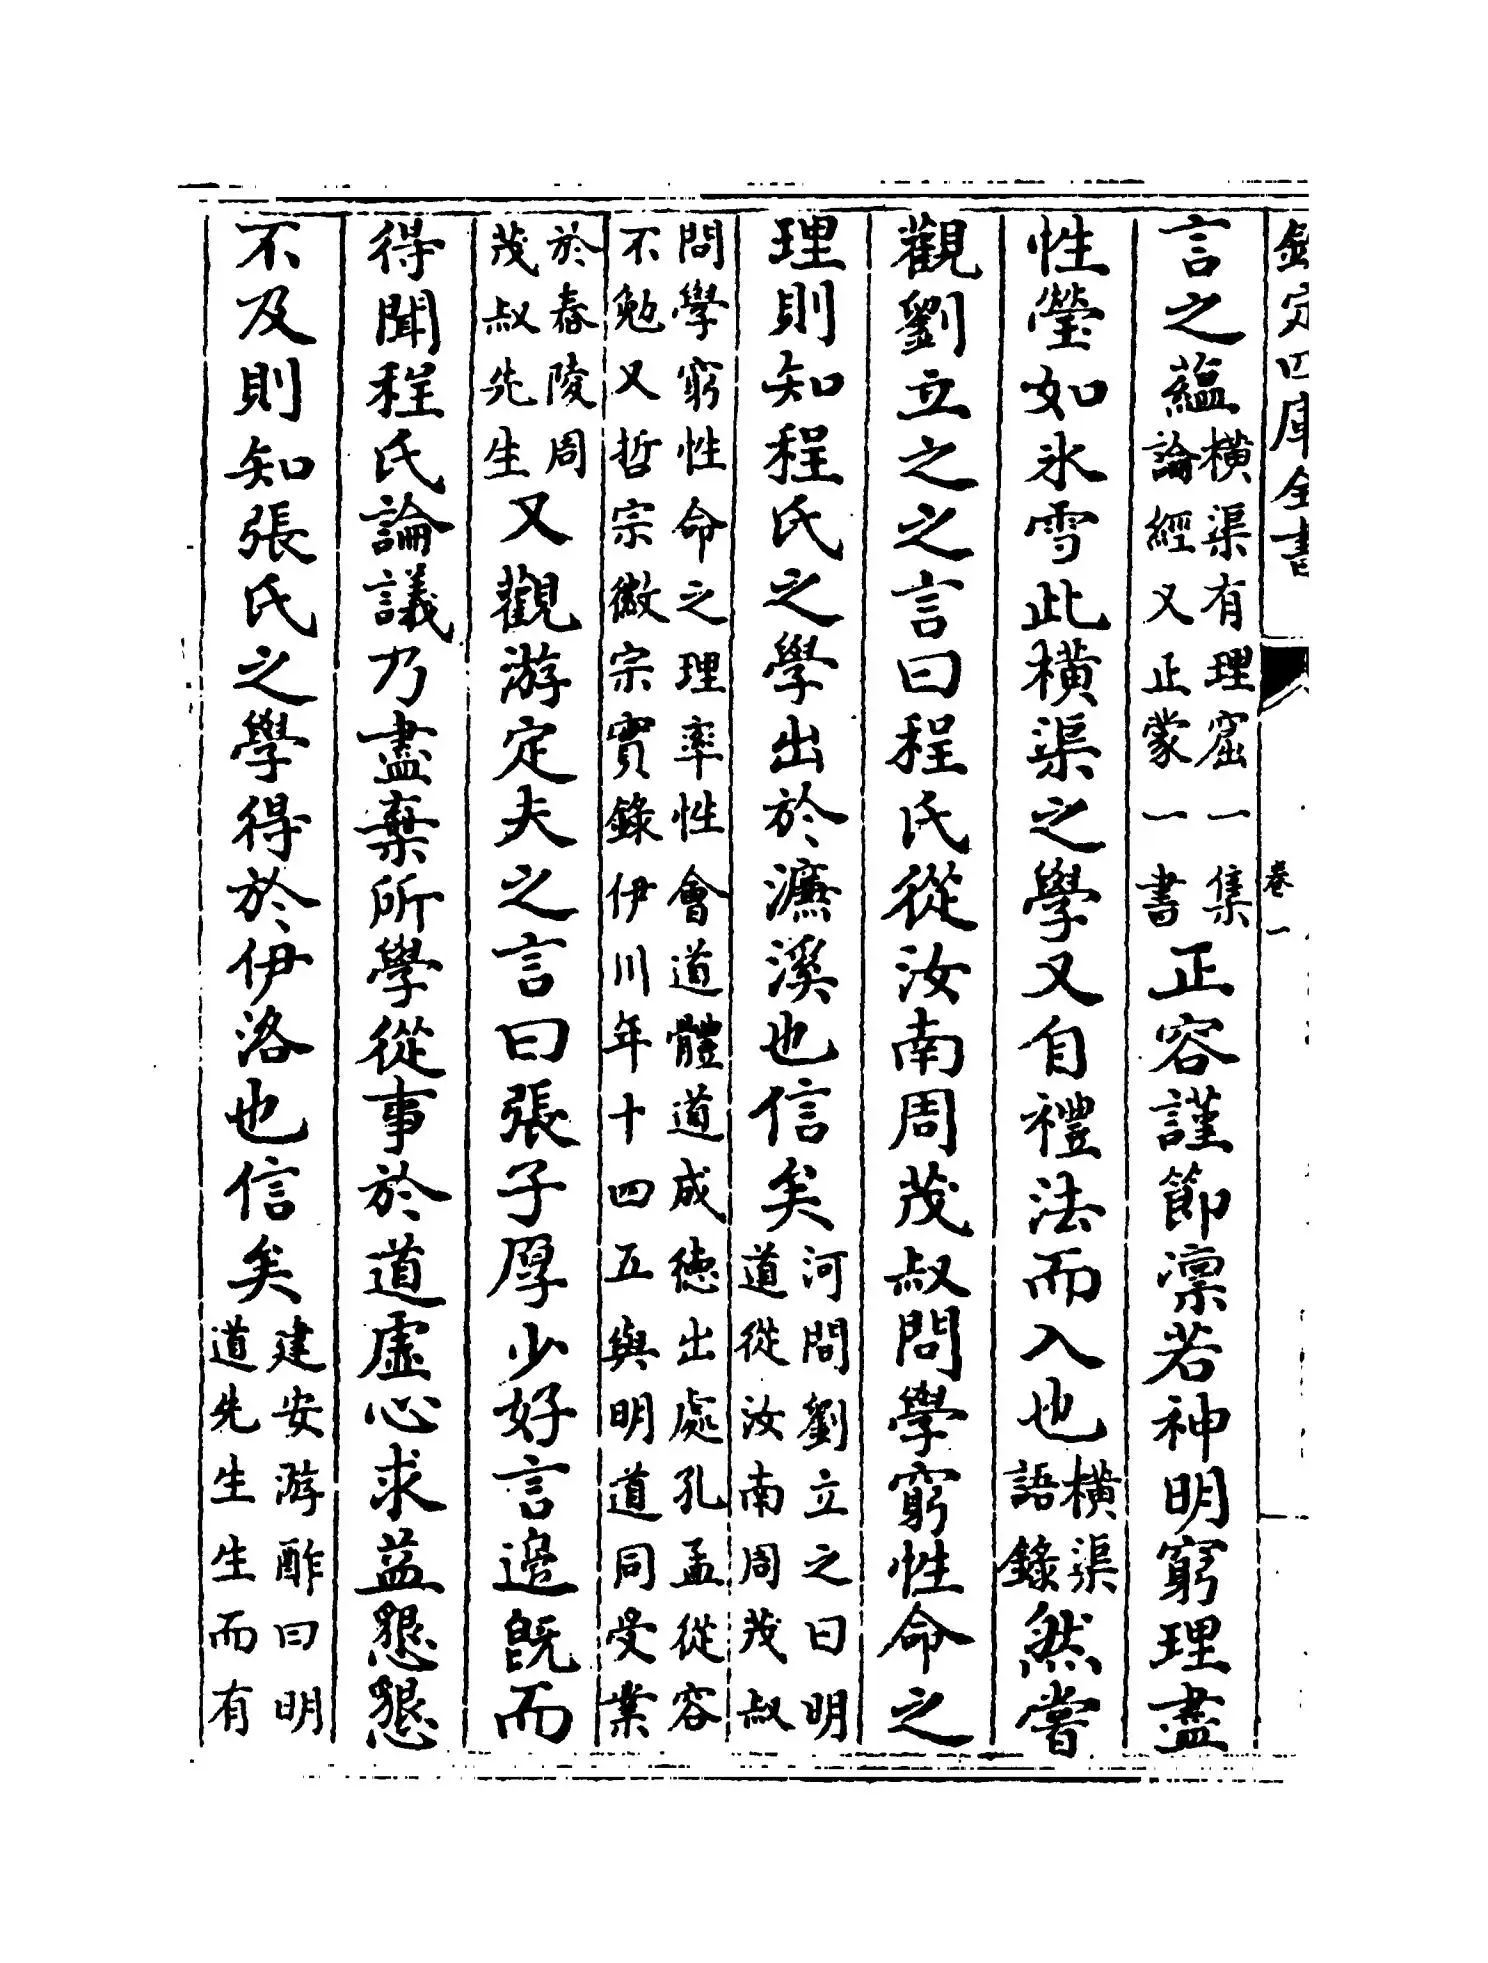 欽定四庫全書
卷一
言之蘊橫渠有理窟一集論經又正蒙一書正容謹節凛若神明窮理盡
性瑩如氷雪此橫渠之學又自禮法而入也橫渠語錄然嘗
觀劉立之之言曰程氏從汝南周茂叔問學窮性命之
理則知程氏之學出於濂溪也信矣河間劉立之曰明道從汝南周茂叔
問學窮性命之理率性會道體道成德出處孔孟從容不勉又哲宗徽宗實錄伊川年十四五與明道同受業
於舂陵周茂叔先生又觀游定夫之言曰張子厚少好言邉既而
得聞程氏論議乃盡棄所學從事於道虛心求益懇懇
不及則知張氏之學得於伊洛也信矣建安游酢曰明道先生生而有